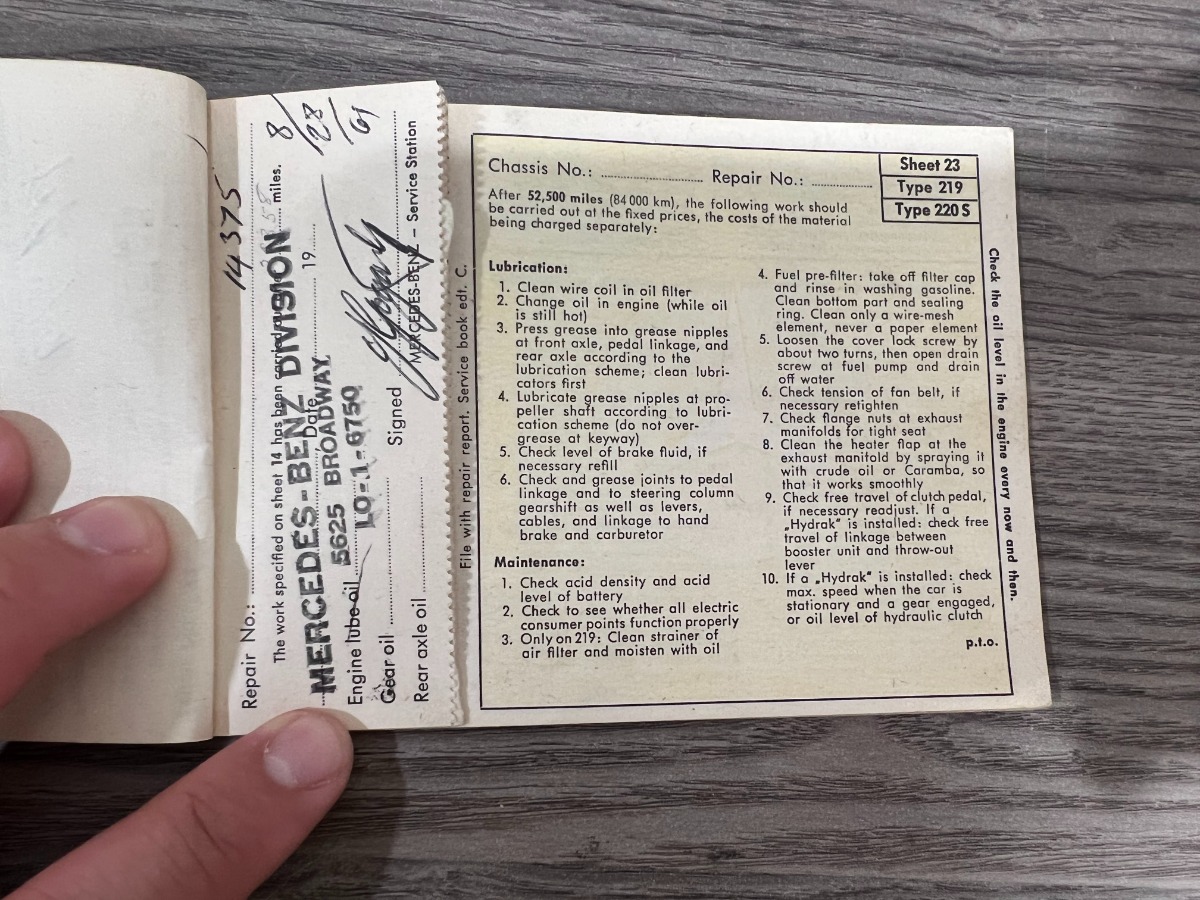 14375
Repair No.:
The work specified on sheet 14 has been carried miles. 8/28/61
MERCEDES-BENZ DIVISION
Date 19
5625 BROADWAY
LO-1-6750
Engine lube oil
Gear oil Signed
MERCEDES-BENZ – Service Station
Rear axle oil
File with repair report. Service book edt. C.
Chassis No.: Repair No.:
Sheet 23
Type 219
Type 220 S
After 52,500 miles (84 000 km), the following work should
be carried out at the fixed prices, the costs of the material
being charged separately:
Lubrication:
1. Clean wire coil in oil filter
2. Change oil in engine (while oil
is still hot)
3. Press grease into grease nipples
at front axle, pedal linkage, and
rear axle according to the
lubrication scheme; clean lubri-
cators first
4. Lubricate grease nipples at pro-
peller shaft according to lubri-
cation scheme (do not over-
grease at keyway)
5. Check level of brake fluid, if
necessary refill
6. Check and grease joints to pedal
linkage and to steering column
gearshift as well as levers,
cables, and linkage to hand
brake and carburetor
Maintenance:
1. Check acid density and acid
level of battery
2. Check to see whether all electric
consumer points function properly
3. Only on 219: Clean strainer of
air filter and moisten with oil
4. Fuel pre-filter: take off filter cap
and rinse in washing gasoline.
Clean bottom part and sealing
ring. Clean only a wire-mesh
element, never a paper element
5. Loosen the cover lock screw by
about two turns, then open drain
screw at fuel pump and drain
off water
6. Check tension of fan belt, if
necessary retighten
7. Check flange nuts at exhaust
manifolds for tight seat
8. Clean the heater flap at the
exhaust manifold by spraying it
with crude oil or Caramba, so
that it works smoothly
9. Check free travel of clutch pedal,
if necessary readjust. If a
„Hydrak" is installed: check free
travel of linkage between
booster unit and throw-out
lever
10. If a „Hydrak" is installed: check
max. speed when the car is
stationary and a gear engaged,
or oil level of hydraulic clutch
p.t.o.
Check the oil level in the engine every now and then.